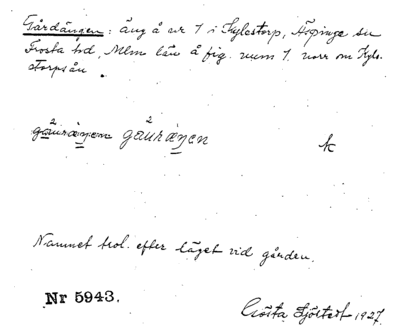 Gårdängen: äng å nr 1 i Kylestorp, Äspinge sn
Frosta hd, Mlm län å fig. num 1. norr om Kyls-
torpsån.
gauræŋen
k
Namnet trol. efter läget vid gården.
Nr 5943.
Gösta Sjöstedt 1927.